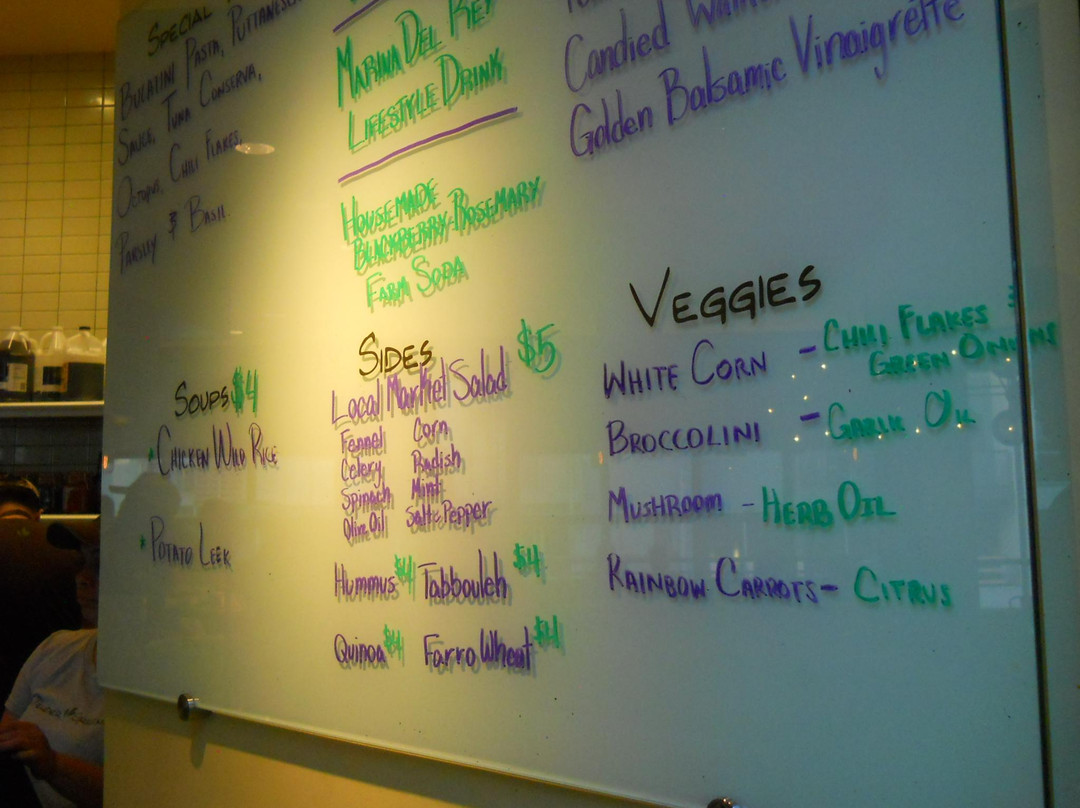 SPECIAL
BUCATINI PASTA, PUTTANESCA
SAUCE, TUNA CONSERVA,
OCTOPUS, CHILI FLAKES,
PARSLEY & BASIL.
MARINA DEL REY
LIFESTYLE DRINK
HOUSEMADE
BLACKBERRY-ROSEMARY
FARM SODA
Candied
Golden Balsamic Vinaigrette
SOUPS $4
* CHICKEN WILD RICE
* POTATO LEEK
SIDES $5
Local Market Salad
Fennel Corn
Celery Radish
Spinach Mint
Olive Oil Salt & Pepper
Hummus $4 Tabbouleh $4
Quinoa $4 Farro Wheat $4
VEGGIES
WHITE CORN - CHILI FLAKES &
GREEN ONIONS
BROCCOLINI - GARLIC OIL
MUSHROOM - HERB OIL
RAINBOW CARROTS - CITRUS